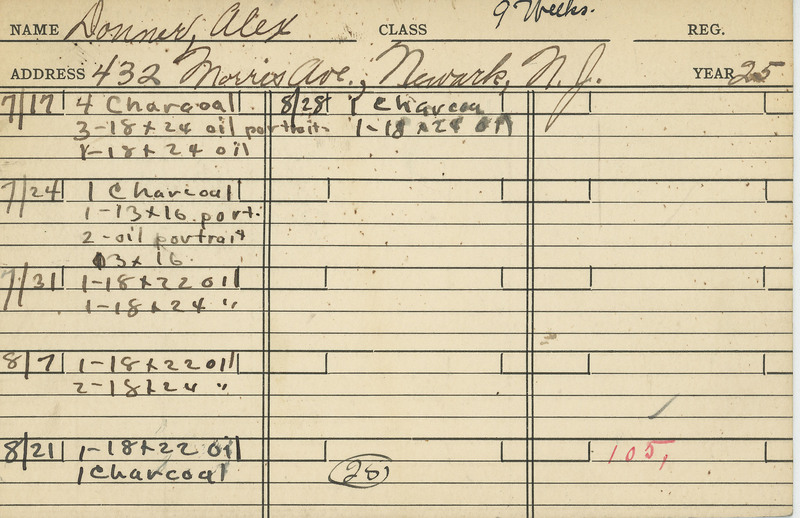 9 Weeks.
NAME Donner, Alex CLASS REG.
ADDRESS 432 Morris Ave., Newark, N.J. YEAR 25
7/17 4 Charcoal
3-18x24 oil portrait
1-18x24 oil
7/24 1 Charcoal
1-13x16 port.
2-oil portrait
13x16
7/31 1-18x22 oil
1-18x24 "
8/7 1-18x22 oil
2-18x24 "
8/21 1-18x22 oil
1 Charcoal
8/28 1 Charcoa
1-18x24 oil
28
105,